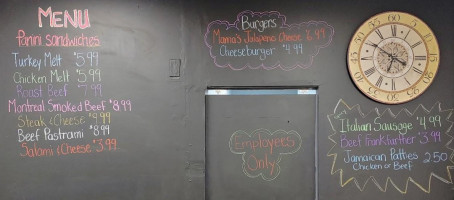 MENU
Panini sandwiches
Turkey Melt $5.99
Chicken Melt $5.99
Roast Beef $7.99
Montreal Smoked Beef $8.99
Steak & Cheese $4.99
Beef Pastrami $8.99
Salami & Cheese $3.99
Burgers
Mama's Jalapeno Cheese
Cheeseburger $4.99
Employees
Only
Italian Sausage $4.99
Beef Frankfurter $3.99
Jamaican Patties 2.50
Chicken or Beef